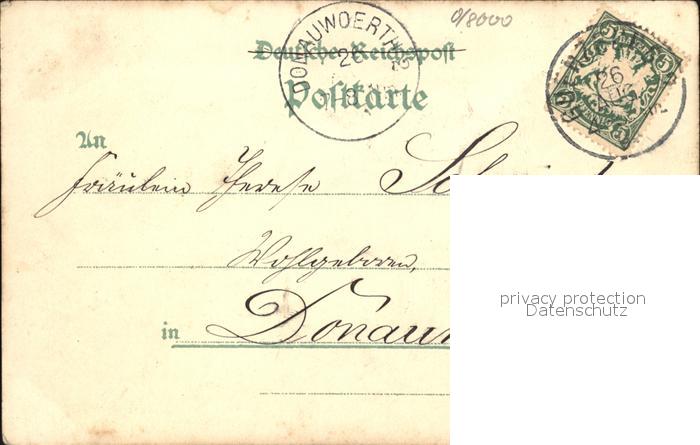 o/8000
DONAUWOERTH
26
Deutsche Reichspost
Postkarte
5 5
PFENNIG
26
An
Fräulein Therese
Wohlgeboren,
in
privacy protection
Datenschutz